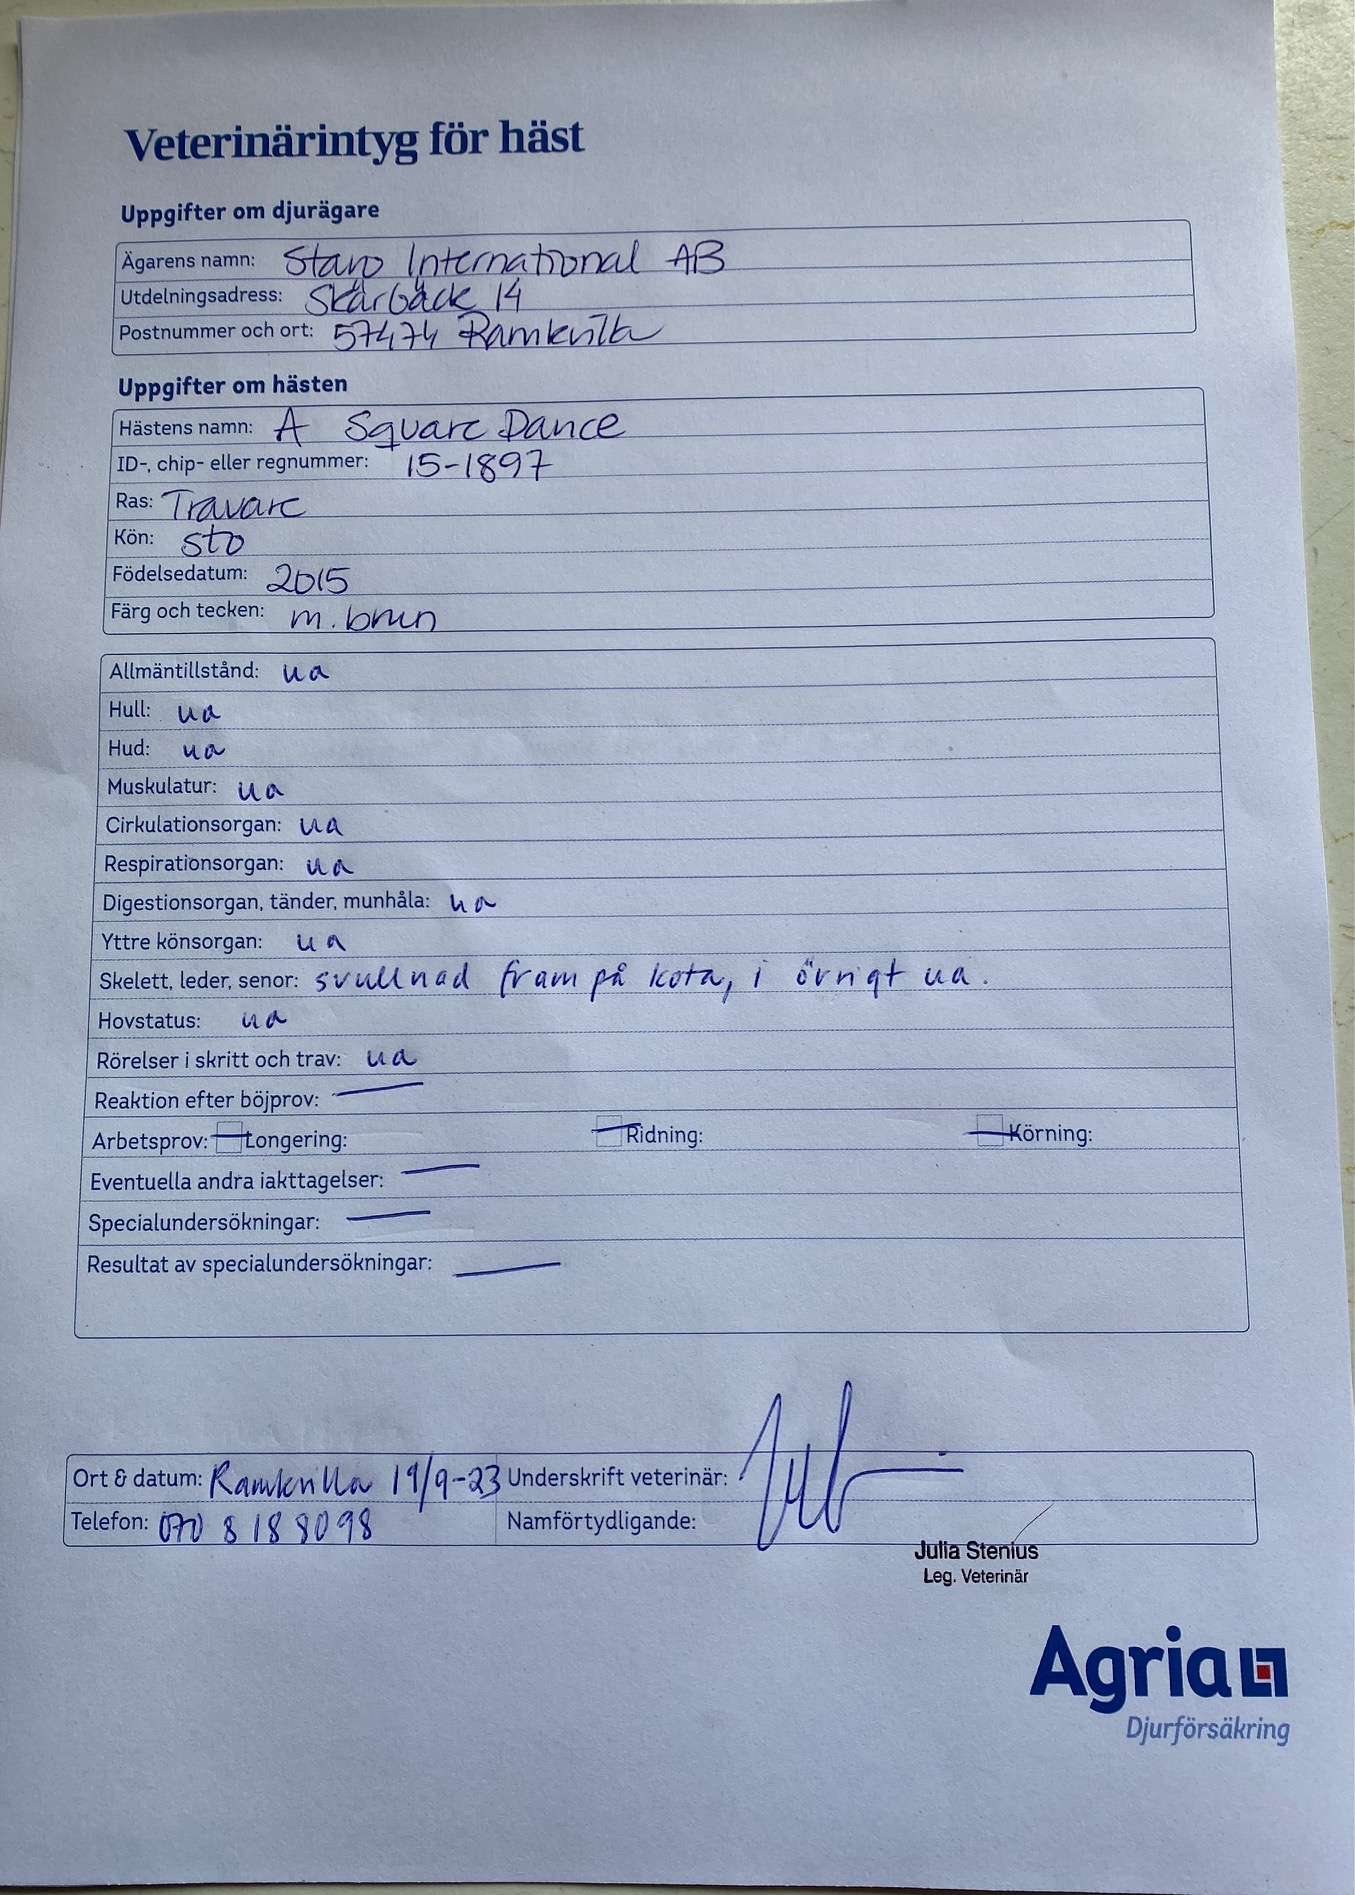 Veterinärintyg för häst
Uppgifter om djurägare
Ägarens namn: Staro International AB
Utdelningsadress: Skärbäck 14
Postnummer och ort: 57474 Ramkvilla
Uppgifter om hästen
Hästens namn: A Square Dance
ID-, chip- eller regnummer: 15-1897
Ras: Travare
Kön: sto
Födelsedatum: 2015
Färg och tecken: m. brun
Allmäntillstånd: ua
Hull: ua
Hud: ua
Muskulatur: ua
Cirkulationsorgan: ua
Respirationsorgan: ua
Digestionsorgan, tänder, munhåla: ua
Yttre könsorgan: ua
Skelett, leder, senor: svullnad fram på kota, i övrigt ua.
Hovstatus: ua
Rörelser i skritt och trav: ua
Reaktion efter böjprov: —
Arbetsprov: Longering: Ridning: Körning:
Eventuella andra iakttagelser: —
Specialundersökningar: —
Resultat av specialundersökningar: —
Ort & datum: Ramkvilla 19/9-23 Underskrift veterinär:
Telefon: 070 8188098 Namförtydligande:
Julia Stenius
Leg. Veterinär
Agria
Djurförsäkring